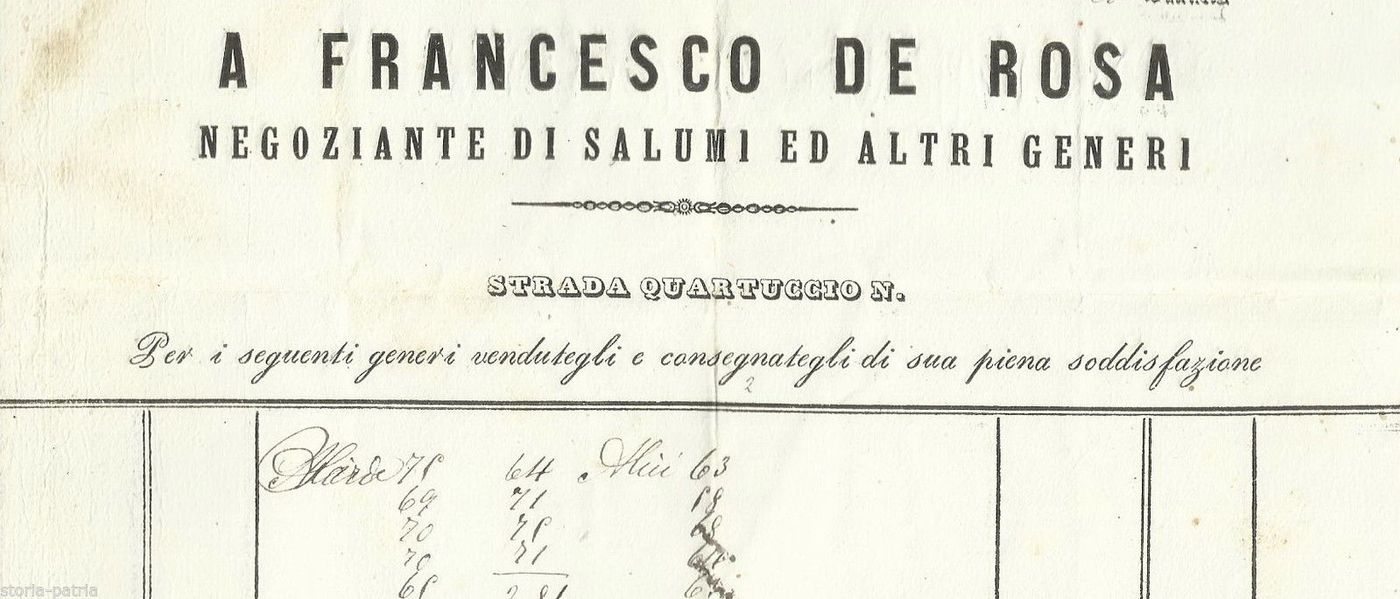 A FRANCESCO DE ROSA
NEGOZIANTE DI SALUMI ED ALTRI GENERI
STRADA QUARTUCCIO N.
Per i seguenti generi vendutegli e consegnategli di sua piena soddisfazione
2
64 Alici 63
69 71
70
71
storia-patria